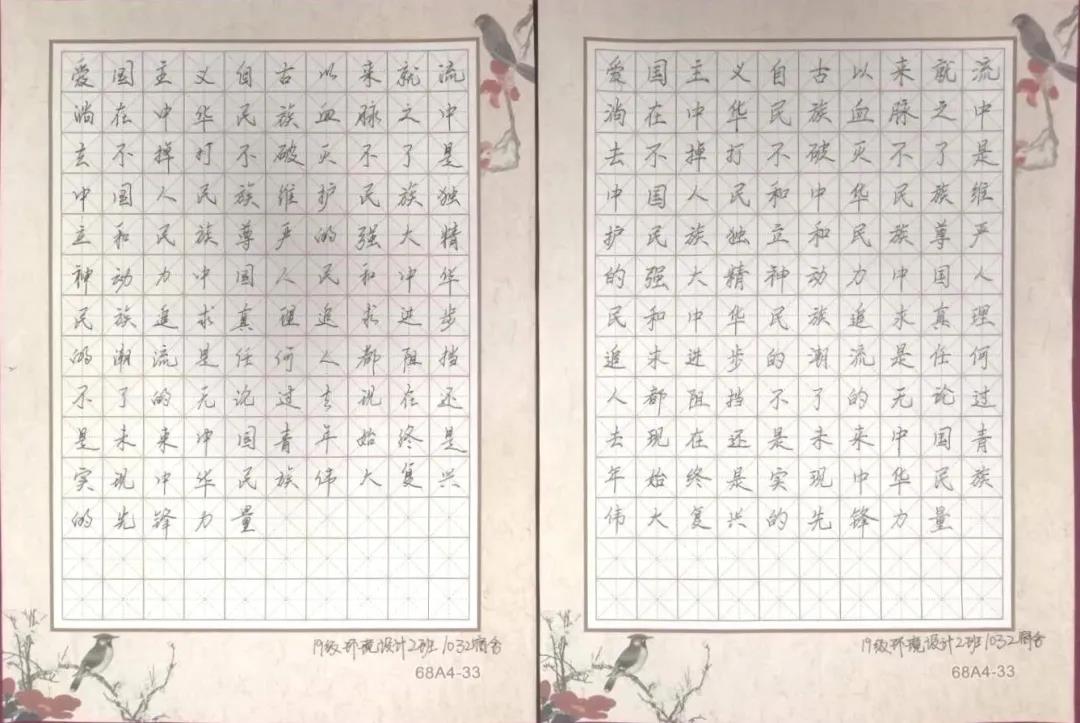 爱国主义自古以来就流
淌在中华民族血脉之中
去不掉打不破灭不了是
中国人民族维护民族独
立和民族尊严的强大精
神动力中国人民和中华
民族追求真理追求进步
的潮流是任何人都阻挡
不了的无论过去现在还
是未来中国青年始终是
实现中华民族伟大复兴
的先锋力量
19级环境设计2班1032宿舍
68A4-33
爱国主义自古以来就流
淌在中华民族血脉之中
去不掉打不破灭不了是
中国人民和中华民族维
护民族独立和民族尊严
的强大精神动力中国人
民和中华民族追求真理
追求进步的潮流是任何
人都阻挡不了的无论过
去现在还是未来中国青
年始终是实现中华民族
伟大复兴的先锋力量
19级环境设计2班1032宿舍
68A4-33